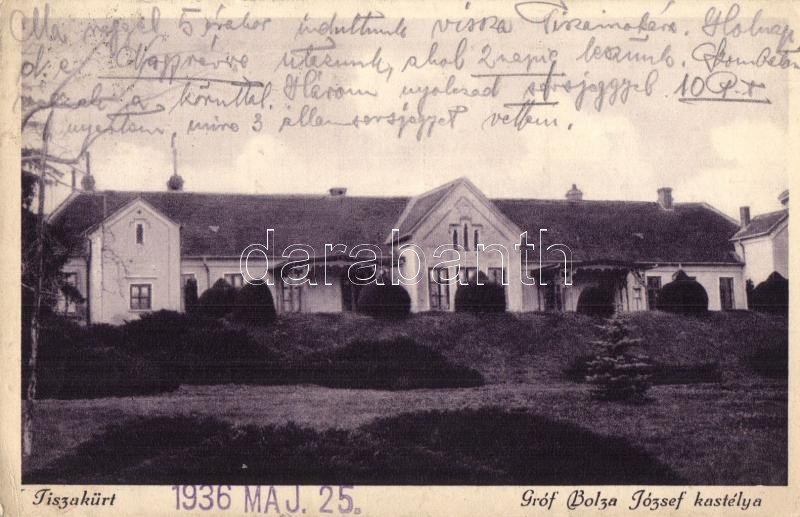 Ma reggel 5 órakor indultunk vissza Tiszainokára. Holnap
d. e. Nagyrévre utazunk, ahol 2 napig leszünk. Szombaton
a körúttal. Három nyolcad sorsjeggyel 10 P-t
nyertem, mire 3 államsorsjegyet vettem.
darabanth
Tiszakürt 1936 MÁJ. 25. Gróf Bolza József kastélya